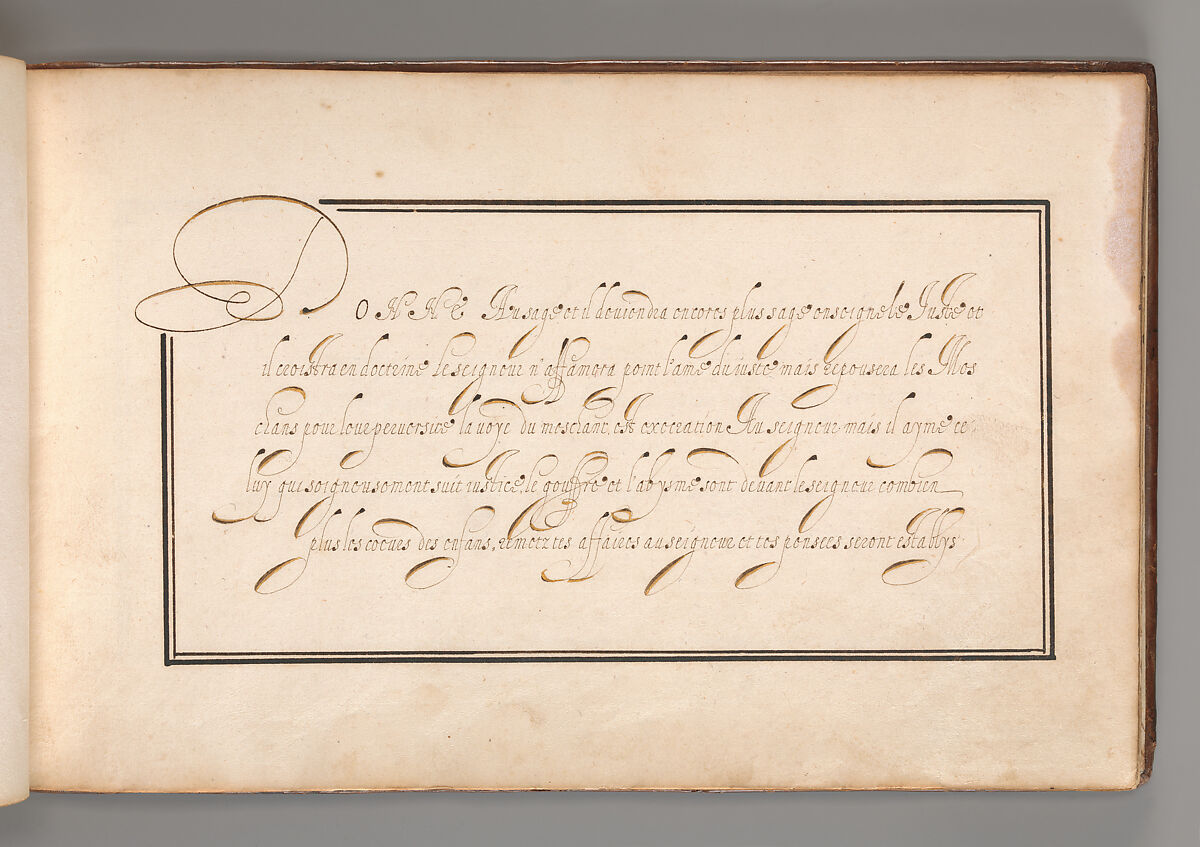 DONNE Au sage et il deviendra encores plus sage enseigne le Juste et
il croistra en doctrine le seigneur n'affamera point l'ame du juste mais repousera les Mes
chans pour leur perversite la voye du meschant est execration Au seigneur mais il ayme ce
luy qui soigneusement suit justice, le gouffre et l'abysme sont devant le seigneur combien
plus les coeurs des enfans, remetz tes affaires au seigneur et tes pensees seront establys